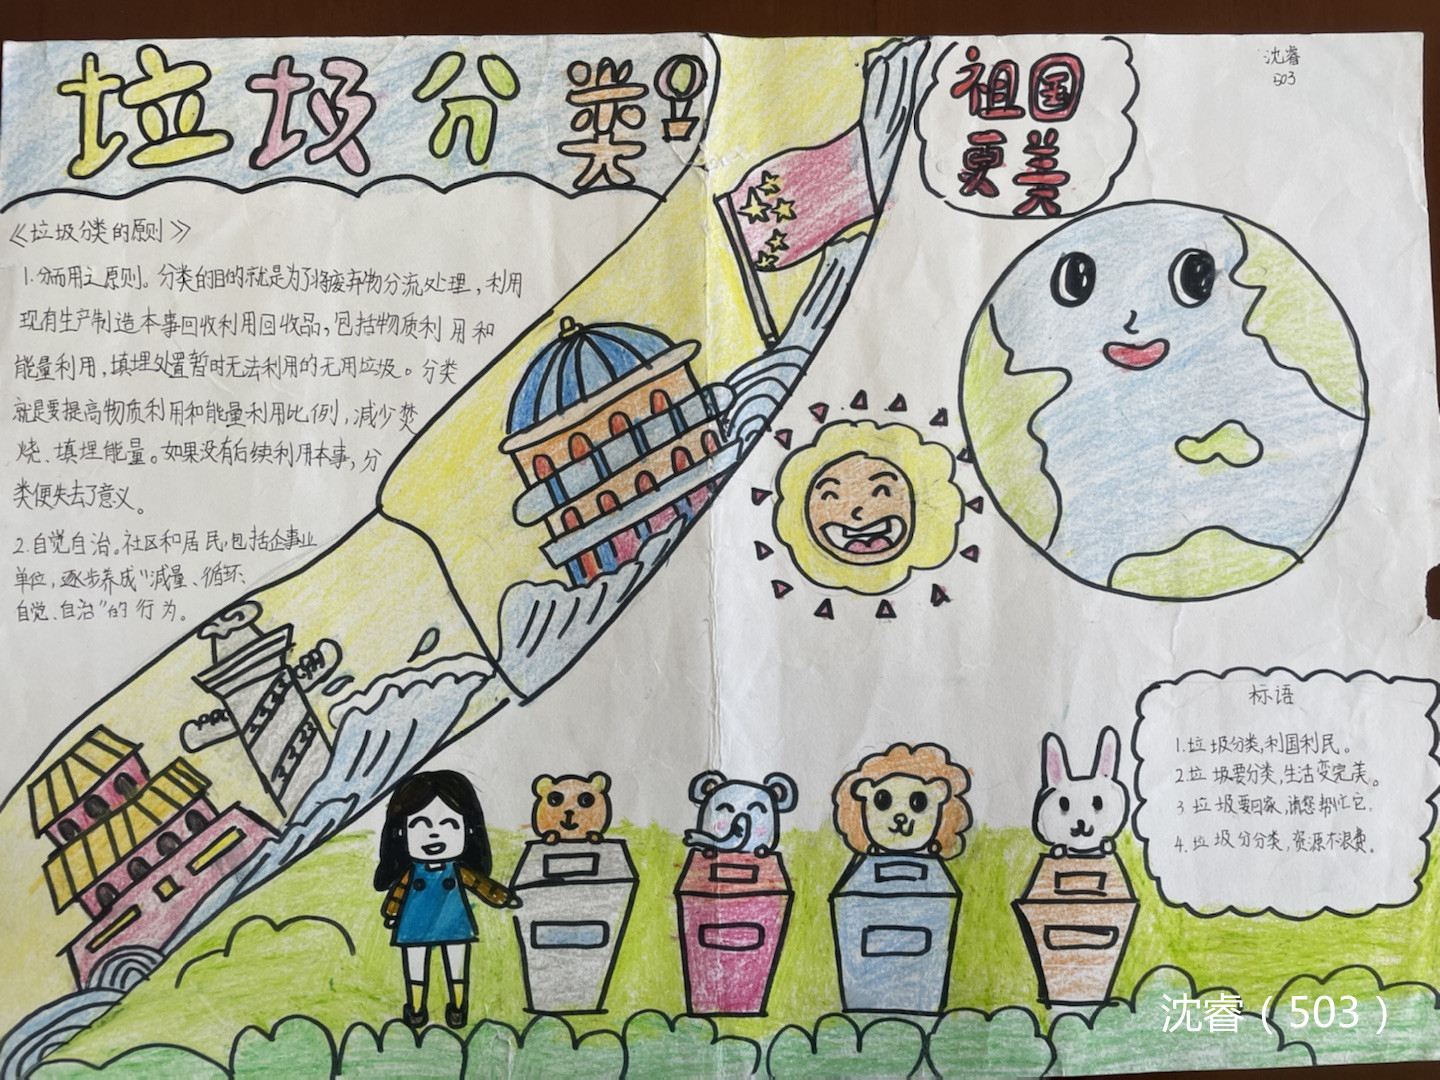 垃圾分类
祖国
更美
沈睿
503
《垃圾分类的原则》
1.分而用之原则。分类的目的就是为了将废弃物分流处理，利用
现有生产制造本事回收利用回收品，包括物质利用和
能量利用，填埋处置暂时无法利用的无用垃圾。分类
就是要提高物质利用和能量利用比例，减少焚
烧、填埋能量。如果没有后续利用本事，分
类便失去了意义。
2.自觉自治。社区和居民，包括企事业
单位，逐步养成“减量、循环、
自觉、自治”的行为。
标语
1.垃圾分类，利国利民。
2.垃圾要分类，生活变完美。
3垃圾要回家，请您帮忙它。
4.垃圾分分类，资源不浪费。
沈睿（503）